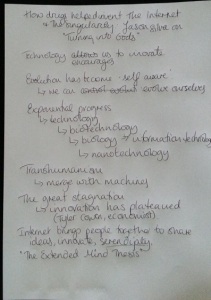 How drugs helped invent the Internet
& The Singularity Jason Silva on
"Turning into Gods"
Technology allows us to innovate
encourages
Evolution has become 'self aware'
↳ we can control evolution evolve ourselves
Exponential progress
↳ technology
↳ biotechnology
↳ biology → information technology
↳ nanotechnology
Transhumanism
↳ merge with machines
The great stagnation
↳ innovation has plateaued
(Tyler Cowen, economist).
Internet brings people together to share
ideas, innovate, serendipity.
"The Extended Mind Thesis"